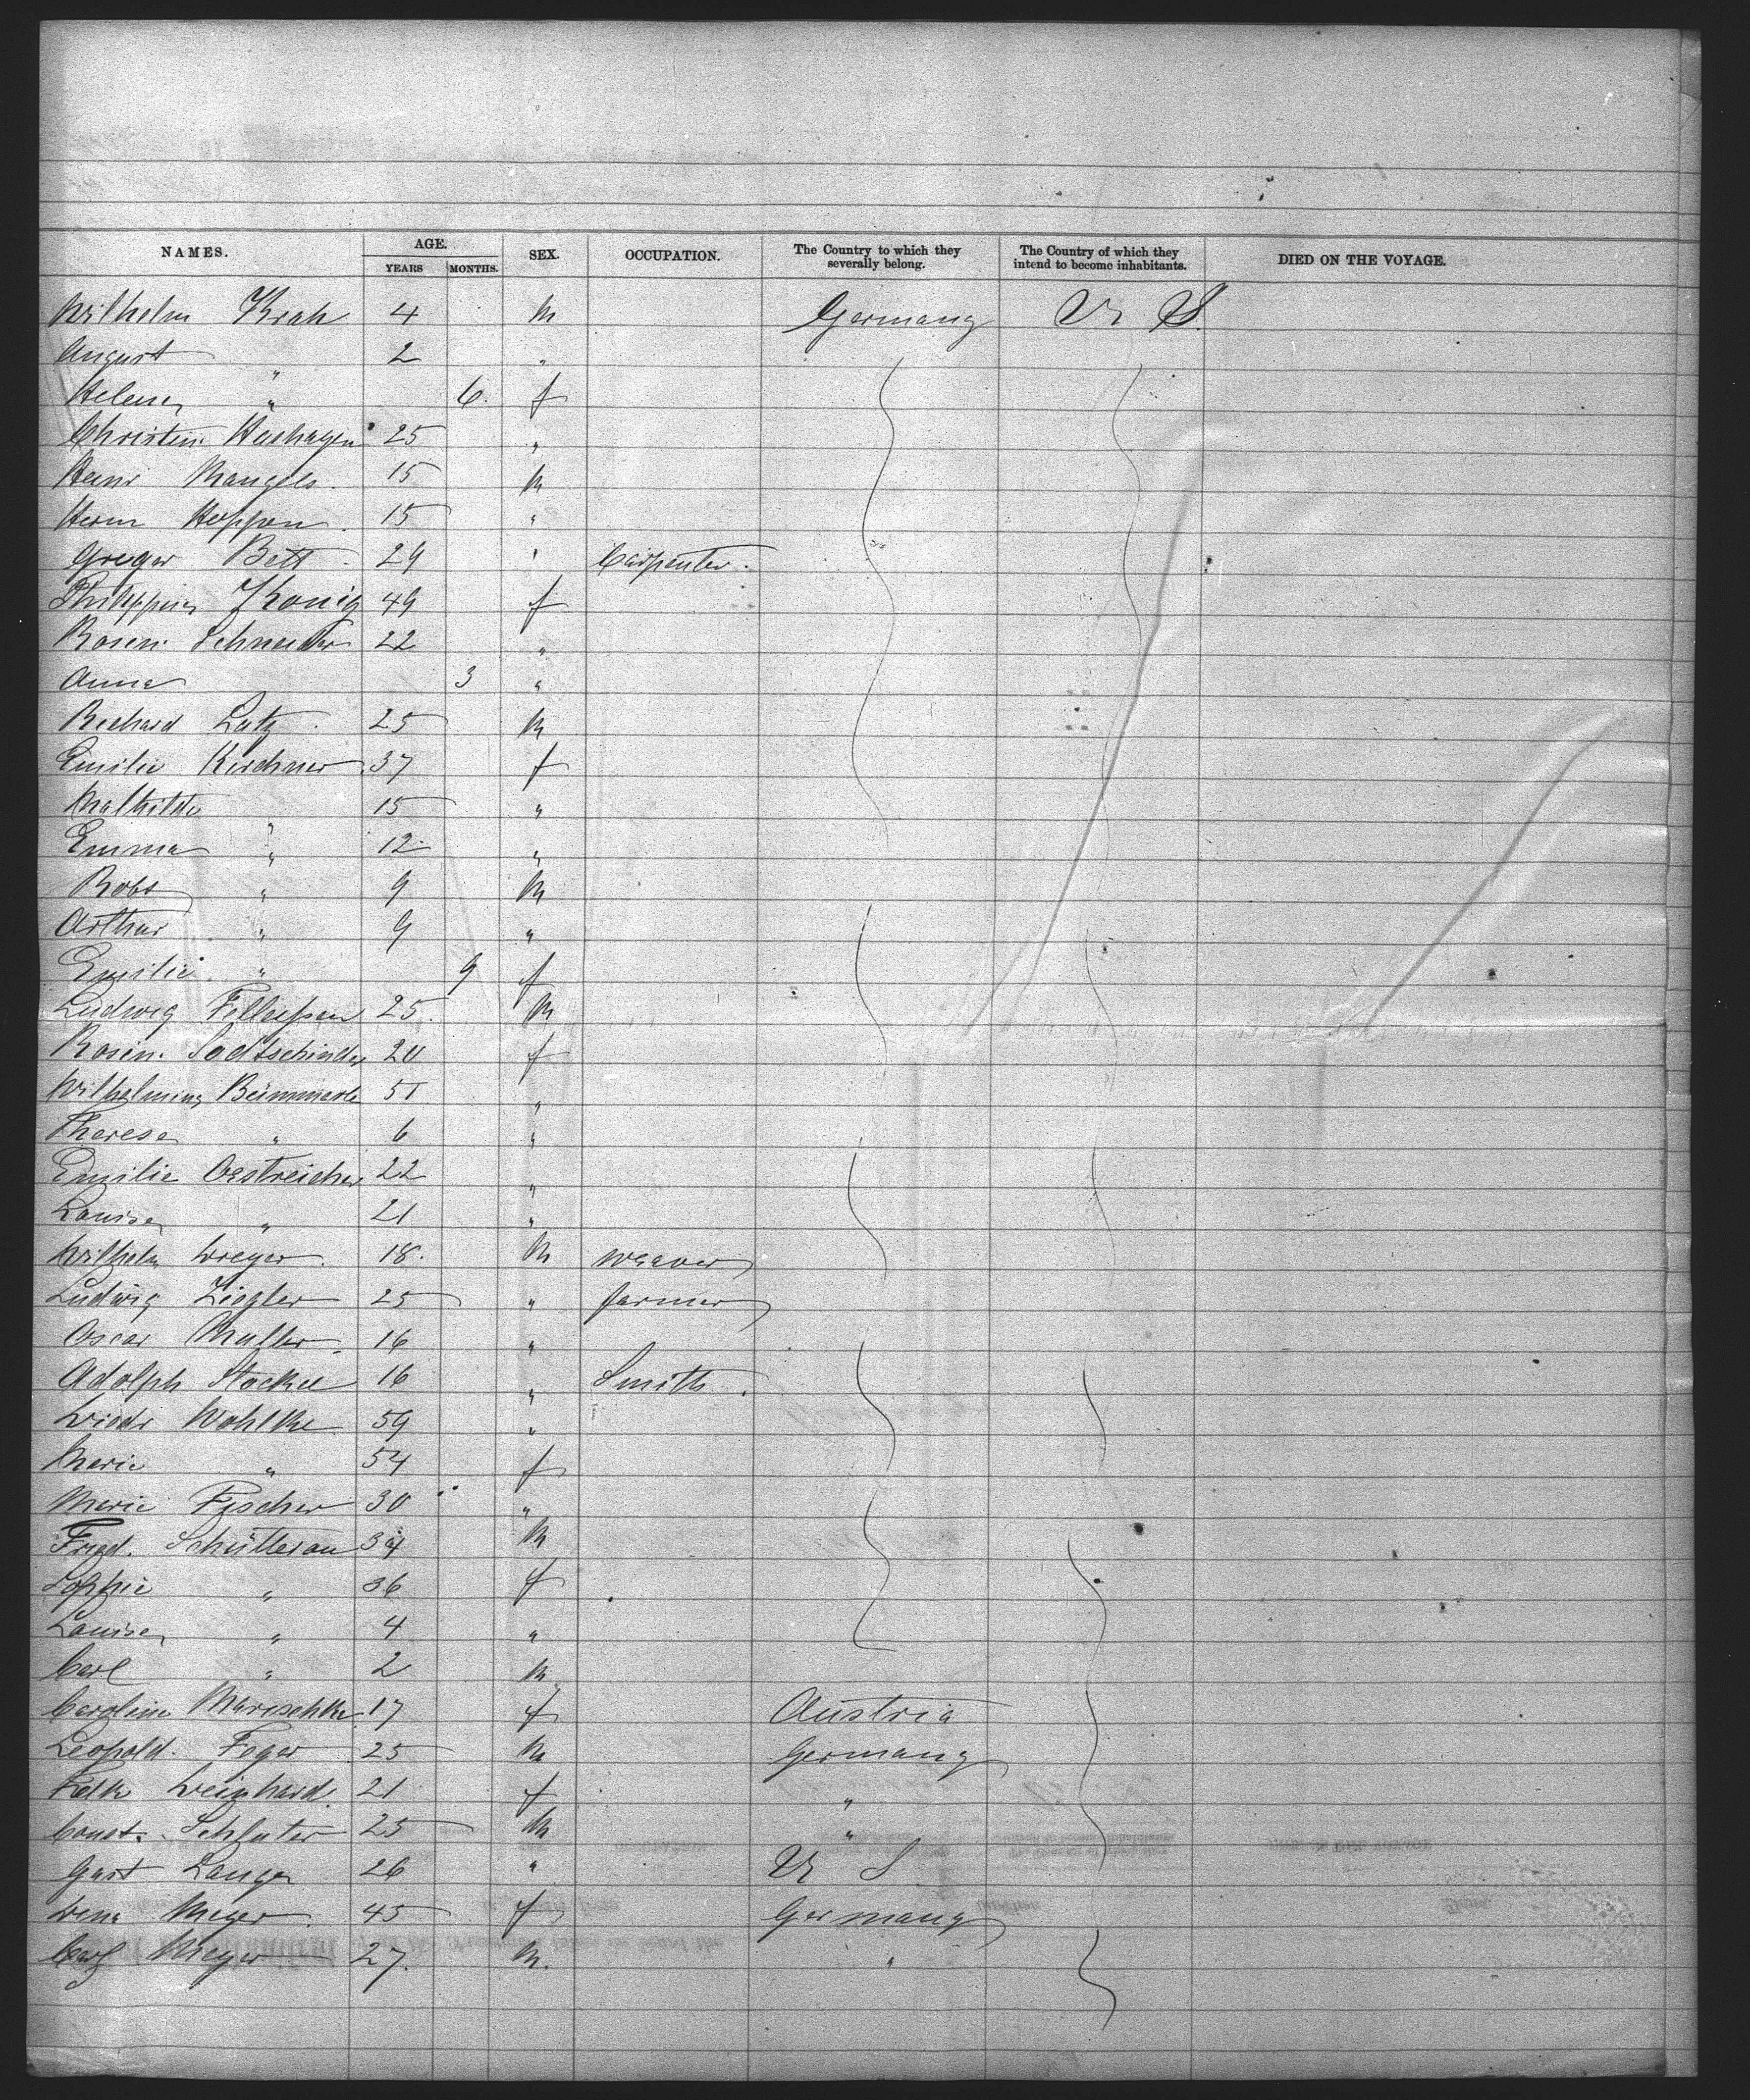 NAMES. AGE. SEX. OCCUPATION. The Country to which they severally belong. The Country of which they intend to become inhabitants. DIED ON THE VOYAGE.
YEARS MONTHS.
Wilhelm Krah 4 M Germany U S.
August " 2 "
Helene " 6 f
Christin. 25 "
Heinr Mangels 15 M
Herm Hoppen 15 "
Gregor Bett 29 " Carpenter.
Philippine König 49 f
Rosin. Schneider 22 "
Anna 3 "
Richard Lutz 25 M
Emilie Kirchner 37 f
Mathilde " 15 "
Emma " 12 "
Robt " 9 M
Arthur " 9 "
Emilie " 9 f
Ludwig 25 M
Rosin. 20 f
Wilhelmine Bümmerle 51 "
Therese " 6 "
Emilie Oestreicher 22 "
Louise " 21 "
Wilhelm Dreyer 18 M weaver
Ludwig Ziegler 25 " farmer
Oscar Muller 16 "
Adolph 16 " Smith.
Diedr Wahlke 59 "
Marie " 54 f
Marie Fischer 30 "
Fried. 34 M
Sophie " 36 f
Louise " 4 "
Carl " 2 M
Caroline Marischke 17 f Austria
Leopold. Feger 25 M Germany
Deinhard 21 f "
Const. Schluter 25 M "
Gust Langer 26 " U S
Dina Meyer 45 f Germany
Carl Meyer 27. M. "